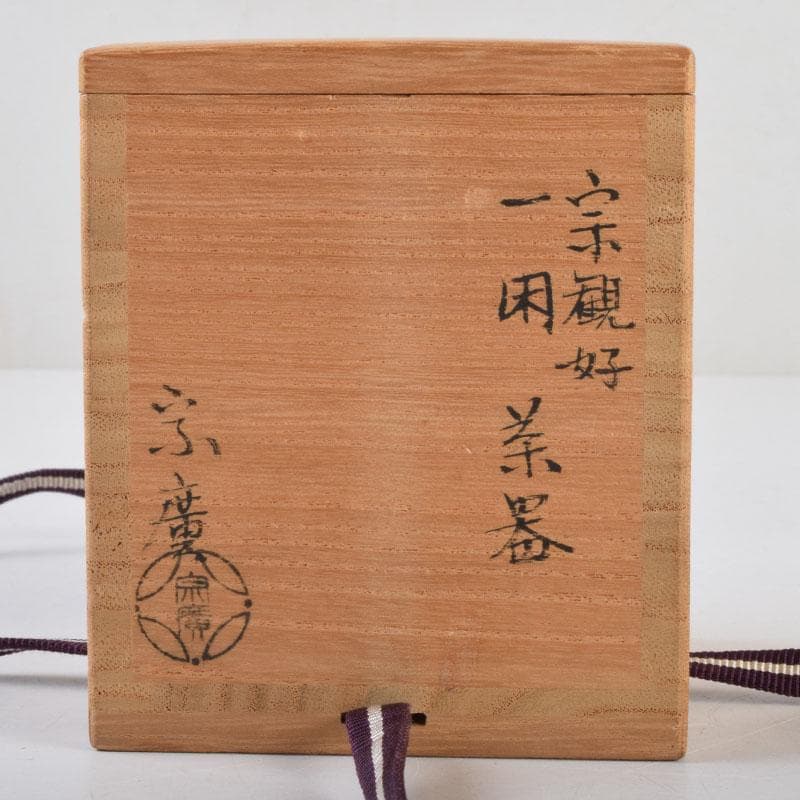 宗観好
一閑 茶器
宗廣
宗廣